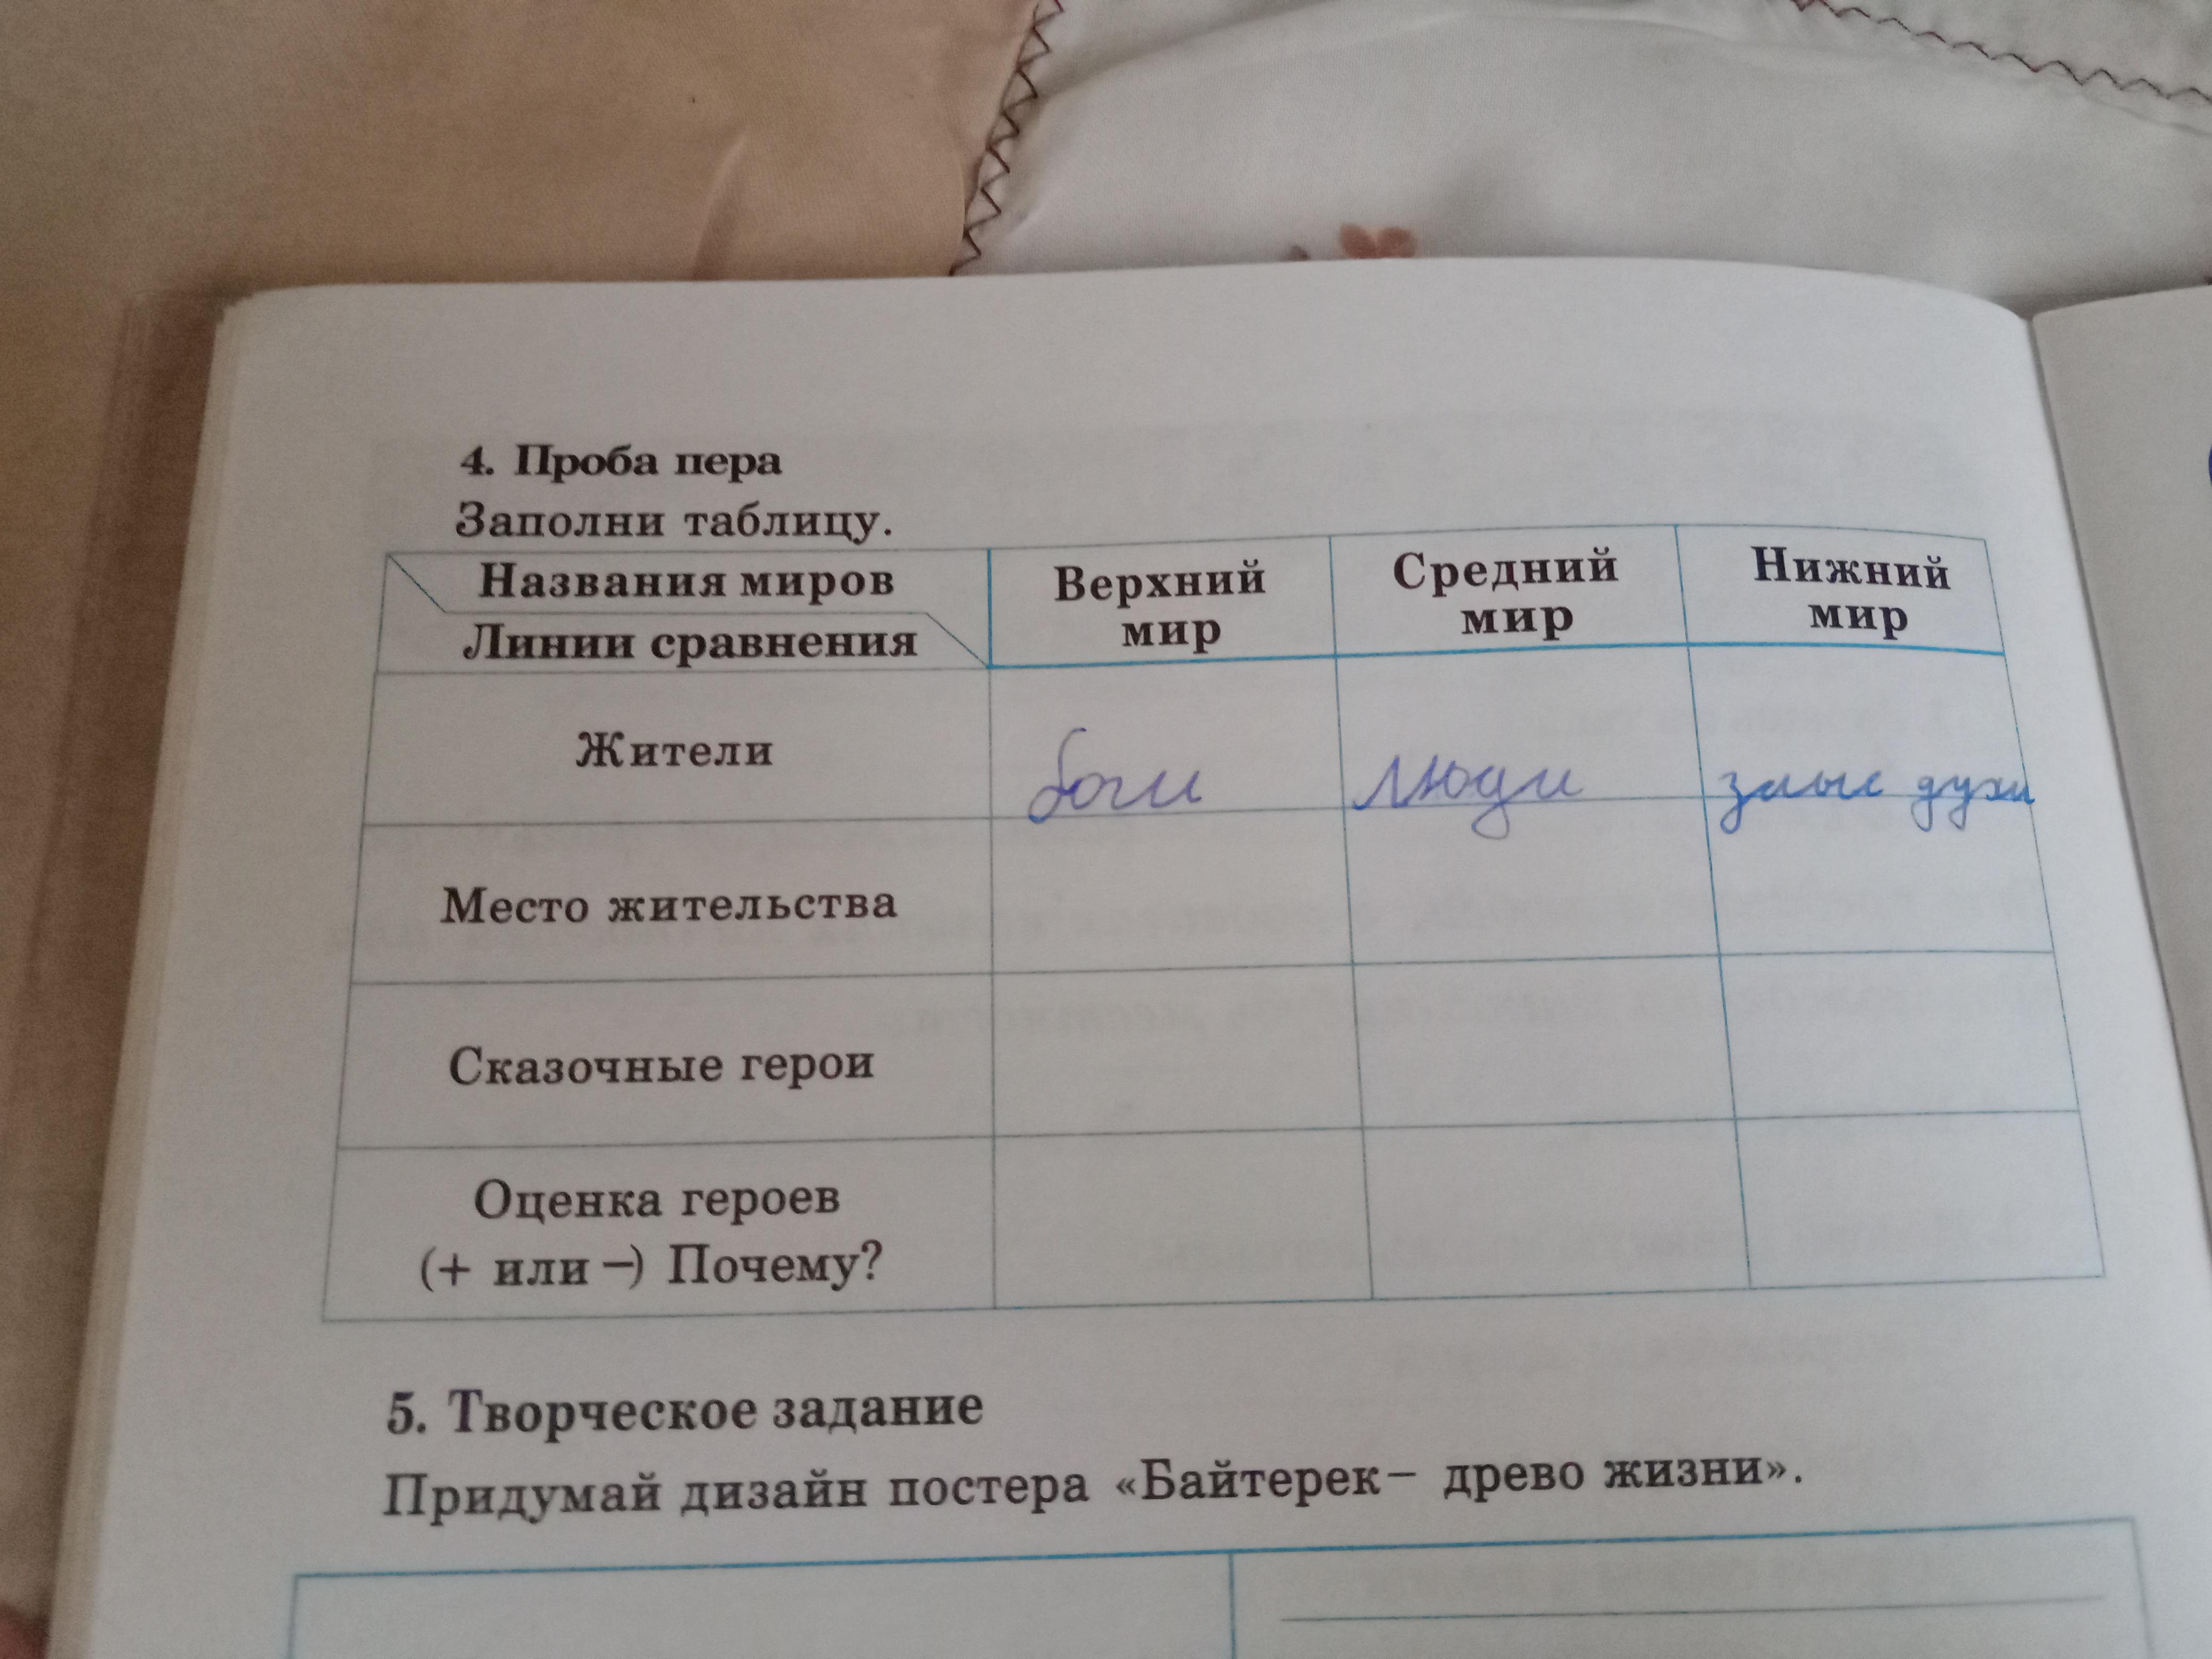 4. Проба пера
Заполни таблицу.
Названия миров
Линии сравнения
Верхний мир
Средний мир
Нижний мир
Жители
боги
люди
злые духи
Место жительства
Сказочные герои
Оценка героев
(+ или −) Почему?
5. Творческое задание
Придумай дизайн постера «Байтерек− древо жизни».